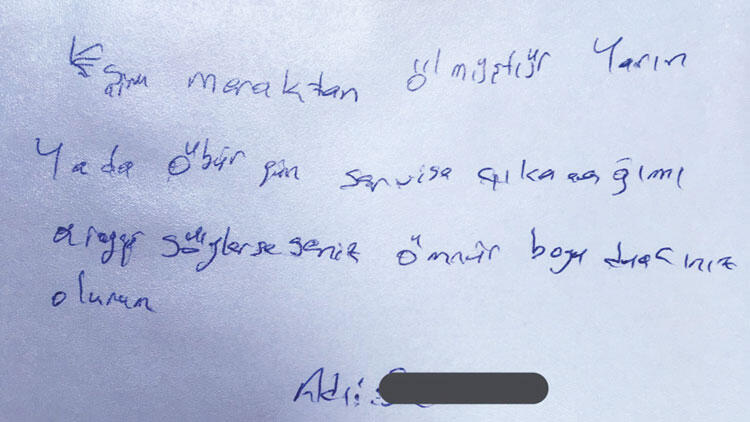 meraktan ölmiştir Yarın
Yada öbür gün servise çıkacağımı
arayıp söylerseseniz ömnür boyu duacınız
olurum
Adı: